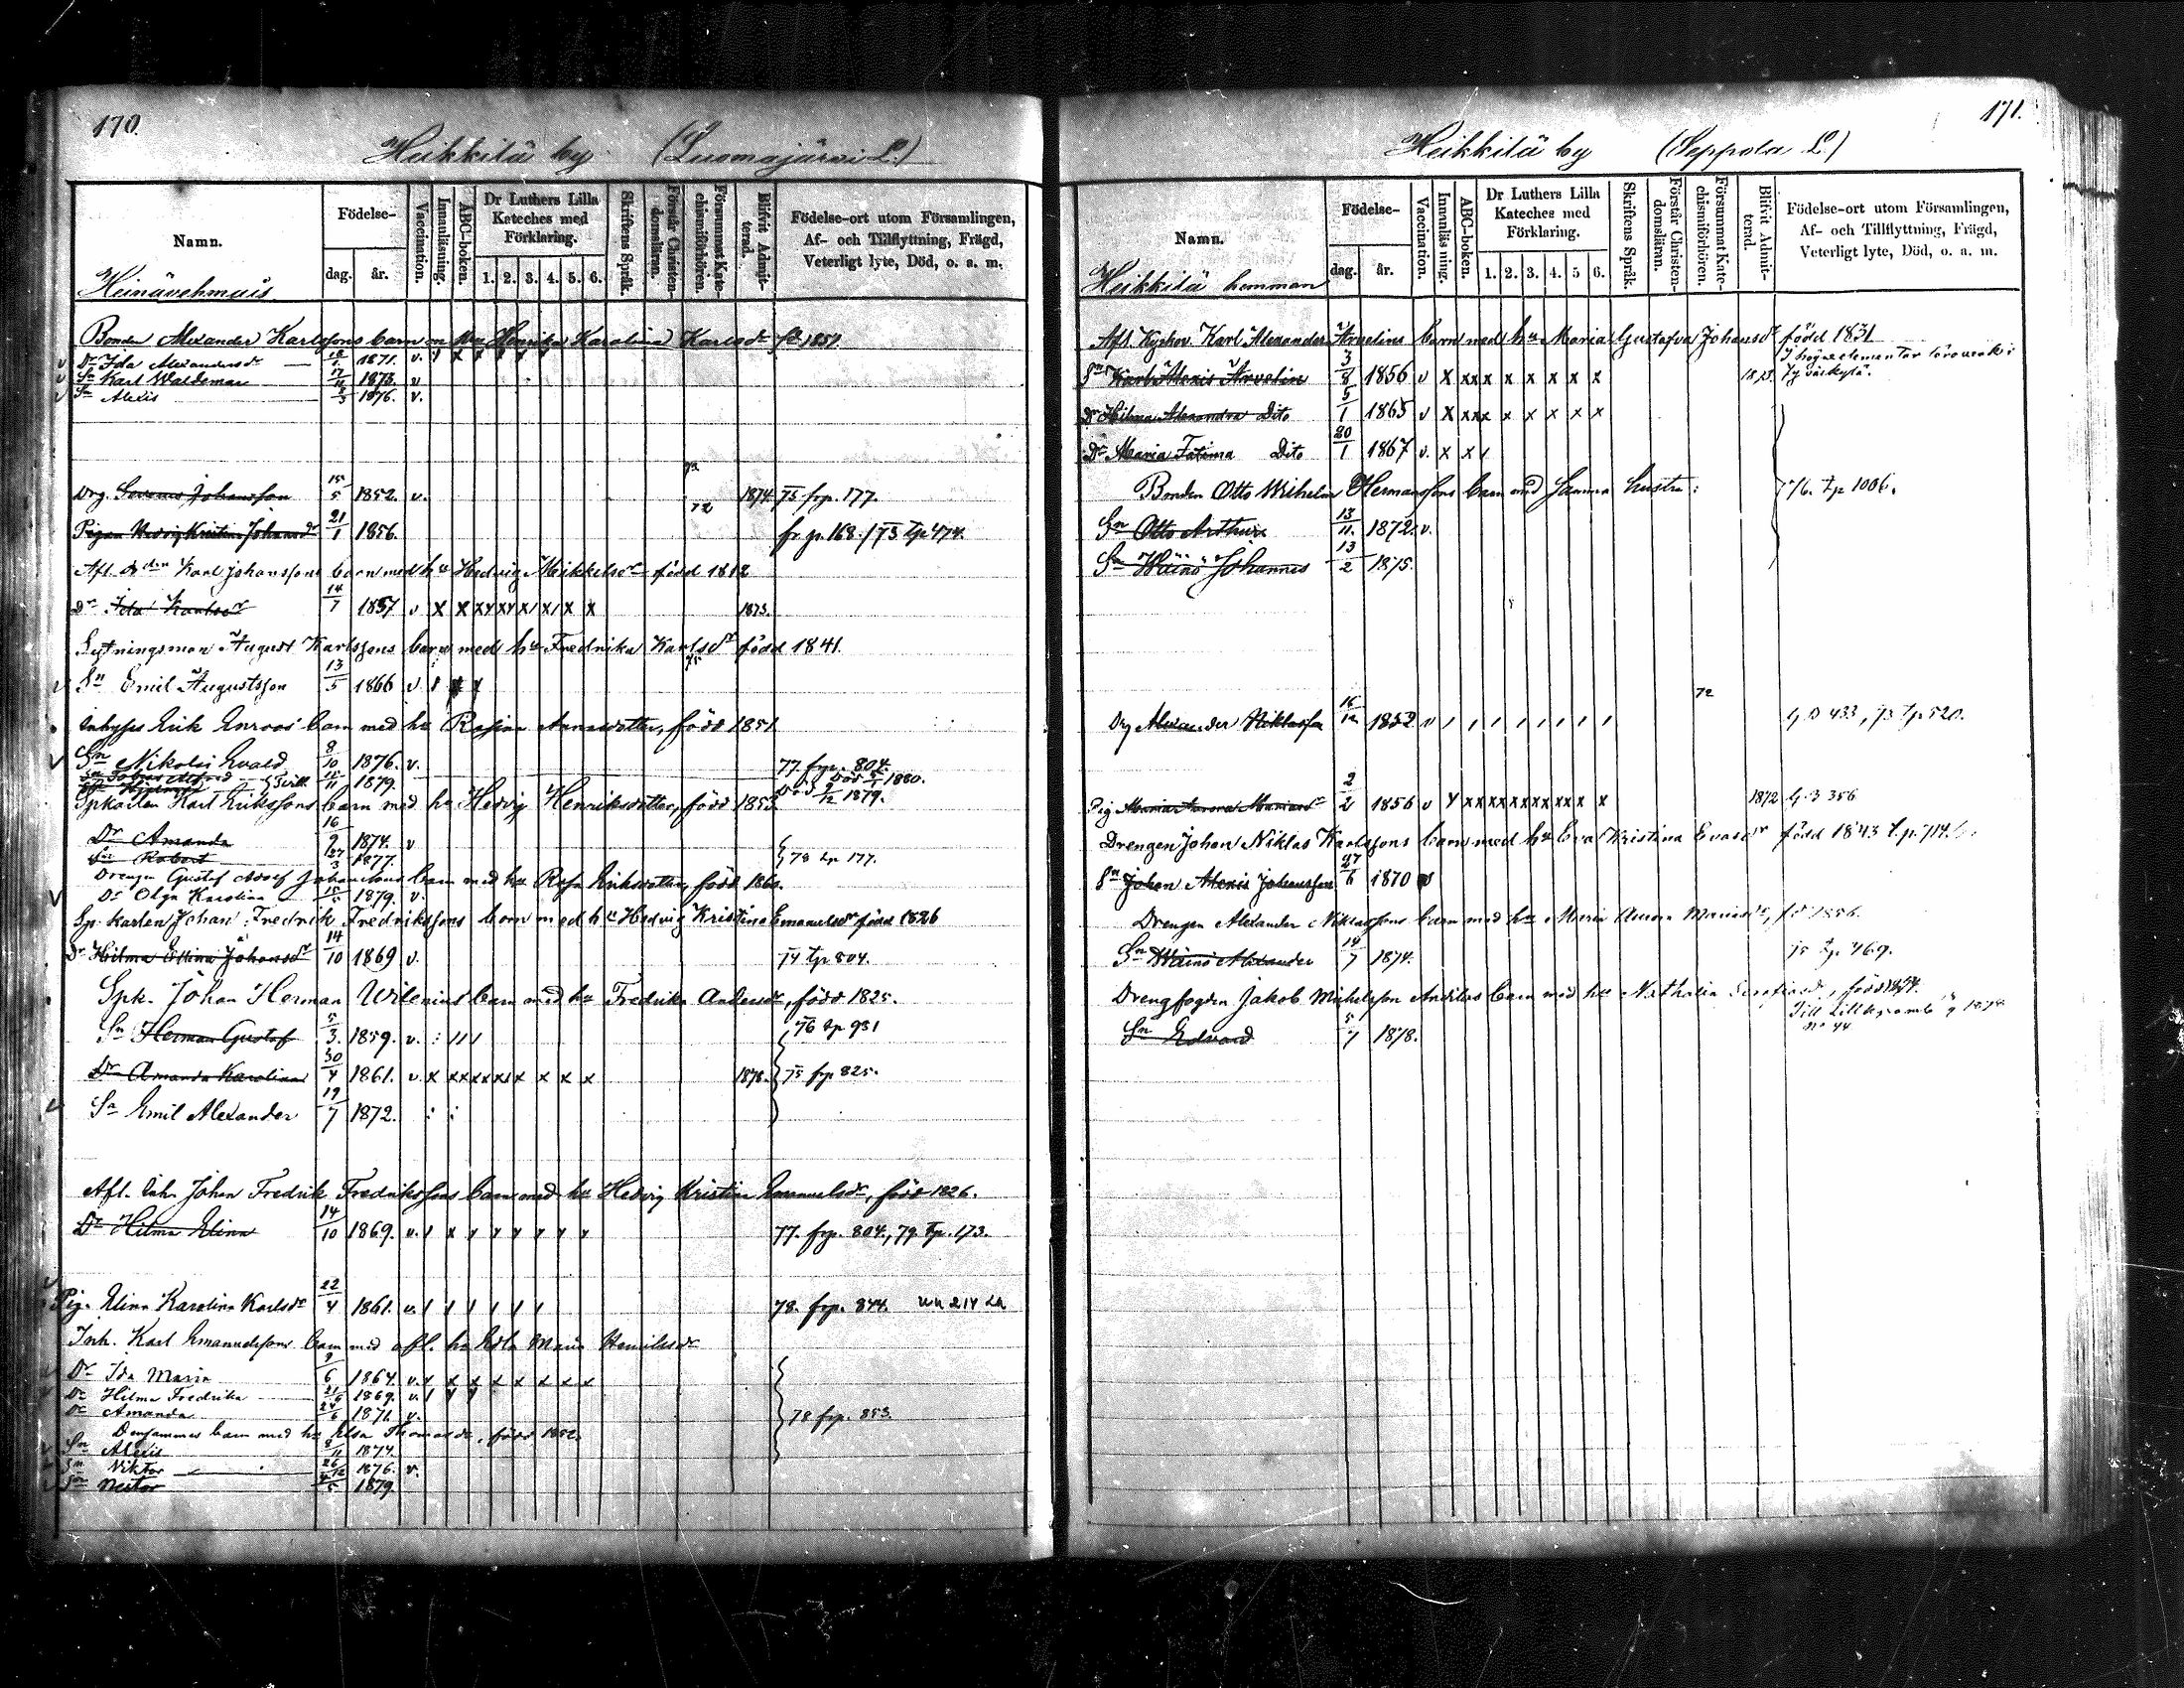 170.
Heikkilä by (Luomajärvi L.)
Namn.
Födelse-
dag.
år.
Vaccination.
Innanläsning.
ABC-boken.
Dr Luthers Lilla Kateches med Förklaring.
1. 2. 3. 4. 5. 6.
Skriftens Språk.
Förstår Christen-domsläran.
Försummat Kate-chismiförhören.
Blifvit Admit-terad.
Födelse-ort utom Församlingen,
Af- och Tillflyttning, Frägd,
Veterligt lyte, Död, o. a. m.
Bonden Alexander Karlssons barn m hu Henrika Karolina Karlsdr 1851.
Dr Ida Alexandersdr 1871. v.
Sn Karl Waldemar 17/11 1873. v
Sn Alexis 1876. v.
Drg. Johansson 15/5 1852. v. 1874 75 frp. 177.
Pigan Hedvig Kristina Johansdr 21/1 1856. 72 fr. p. 168. / 73 tp 474.
Afl. Karl Johanssons barn med hu Hedvig Mikkelsdr född 1812
Dr Ida Karlsdr 14/7 1857 v x x x x x x 1873.
Sytningsman August Karlssons barn med hu Fredrika Karlsdr född 1841.
Sn Emil Augustsson 13/5 1866 v
Inhyses Erik Enroos barn med hu Rosina Annasdotter, född 1851
Sn Nikolai Evald 8/10 1876. v. 77. frp. 804.
11 1879. Död 1880.
Död 9/12 1879.
Spkarlen Karl Erikssons barn med hu Hedvig Henriksdotter, född 1853
Dr Amanda 16/9 1874. v
Sn Robert 27/3 1877. 78 tp 177.
Drengen Gustaf Adolf Johanssons barn med hu Rosa Eriksdotter, född 1860.
Dr Olga Karolina 1879. v.
Sp. karlen Johan Fredrik Fredrikssons barn med hu Hedvig Kristina Emanuelsdr född 1826
Dr Hilma Elina Johansdr 14/10 1869 v. 74 tp 804.
Spk. Johan Herman Widenius barn med hu Fredrika Andersdr, född 1825.
Sn Herman Gustaf 5/3. 1859. v. 76 tp 931
Dr Amanda Karolina 30/4 1861. v x x x x x x x x 1878. 75 frp 825.
Sn Emil Alexander 19/7 1872.
Afl. Inh. Johan Fredrik Fredrikssons barn med hu Hedvig Kristina Emanuelsdr, född 1826.
Dr Hilma Elina 14/10 1869. v. 77. frp. 804., 79. tp. 173.
Pig. Elina Karolina Karlsdr 22/4 1861. v. 78. frp. 844.
Inh. Karl Emanuelssons barn med afl. hu Edla Maria
Dr Ida Maria 9/6 1864. v. x x x x x x x
Dr Hilma Fredrika 21/6 1869. v.
Dr Amanda 24/6 1871. v. 78 frp. 853.
Densammes barn med hu Elsa Thomasdr, född 1852.
Sn Alexis 8/11 1874.
Sn Viktor 26/12 1876. v.
Sn Nestor 1879
171.
Heikkilä by (Seppola L.)
Namn.
Heikkilä hemman
Födelse-
dag.
år.
Vaccination.
Innanläsning.
ABC-boken.
Dr Luthers Lilla Kateches med Förklaring.
1. 2. 3. 4. 5 6.
Skriftens Språk.
Förstår Christen-domsläran.
Försummat Kate-chismiförhören.
Blifvit Admit-terad.
Födelse-ort utom Församlingen,
Af- och Tillflyttning, Frägd,
Veterligt lyte, Död, o. a. m.
Afl. Karl Alexander Arvelins barn med hu Maria Gustafva Johansdr född 1831
Sn Karl Alexis Arvelin 3/8 1856 v x xx x x x x x x 1873.
Dr Hilma Alexandra Dito 5/1 1865 v x xxx x x x x x
Dr Maria Fatima Dito 20/1 1867 v. x x
Bonden Otto Wilhelm Hermanssons barn med samma hustru: 76. tp 1006.
Sn Otto Arthur 13/11. 1872. v.
Sn Wäinö Johannes 13/2 1875.
Drg Alexander Niklasson 16/12 1852 v 72 433, 73 tp 520.
Pig Maria Aurora Mariasdr 2/2 1856 v 1872 356
Drengen Johan Niklas Karlssons barn med hu Eva Kristina Evasdr född 1843 t.p. 714.
Sn Johan Alexis Johansson 27/6 1870
Drengen Alexander Niklassons barn med hu Maria Aurora Mariasdr, 1856.
Sn Wäinö Alexander 14/7 1874. 75 tp 469.
Drengfogden Jakob Michelsson barn med hu Nathalia
Sn Edvard 5/7 1878.
No 44